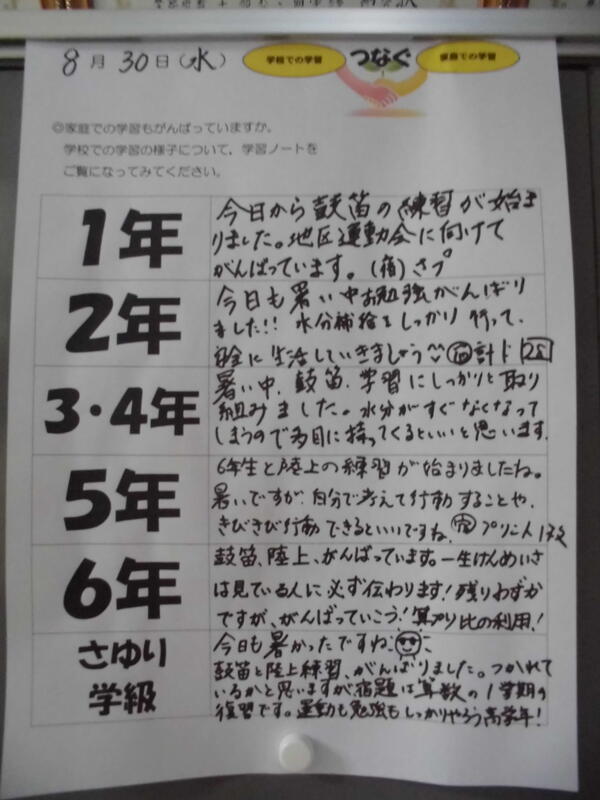 8月30日(水)
学校での学習
つなぐ
家庭での学習
◎家庭での学習もがんばっていますか。
学校での学習の様子について、学習ノートを
ご覧になってみてください。
1年
今日から鼓笛の練習が始ま
りました。地区運動会に向けて
がんばっています。(宿)さプ
2年
今日も暑い中お勉強がんばり
ました!! 水分補給をしっかり行って、
安全に生活していきましょう 宿 計ド 25
3・4年
暑い中、鼓笛、学習にしっかりと取り
組みました。水分がすぐなくなって
しまうので多目に持ってくるといいと思います。
5年
6年生と陸上の練習が始まりましたね。
暑いですが、自分で考えて行動することや、
きびきび行動できるといいですね。宅 プリント1枚
6年
鼓笛、陸上、がんばっています。一生けんめいさ
は見ている人に必ず伝わります!残りわずか
ですが、がんばっていこう!算プリ比の利用!
さゆり
学級
今日も暑かったですね
鼓笛と陸上練習、がんばりました。つかれて
いるかと思いますが宿題は算数の1学期の
復習です。運動も勉強もしっかりやろう高学年!